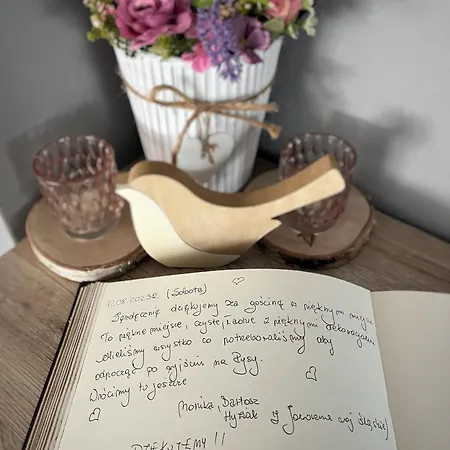 12.08.2023r. (Sobota)
Serdecznie dziękujemy za gościnę w pięknym miejscu
To piękne miejsce, czyste, ładne z pięknymi dekoracjami
Mieliśmy wszystko co potrzebowaliśmy aby
odpocząć po wyjściu na Rysy.
Wrócimy tu jeszcze
Monika, Bartosz
Jaworzna woj śląskie)
DZIĘKUJEMY !!